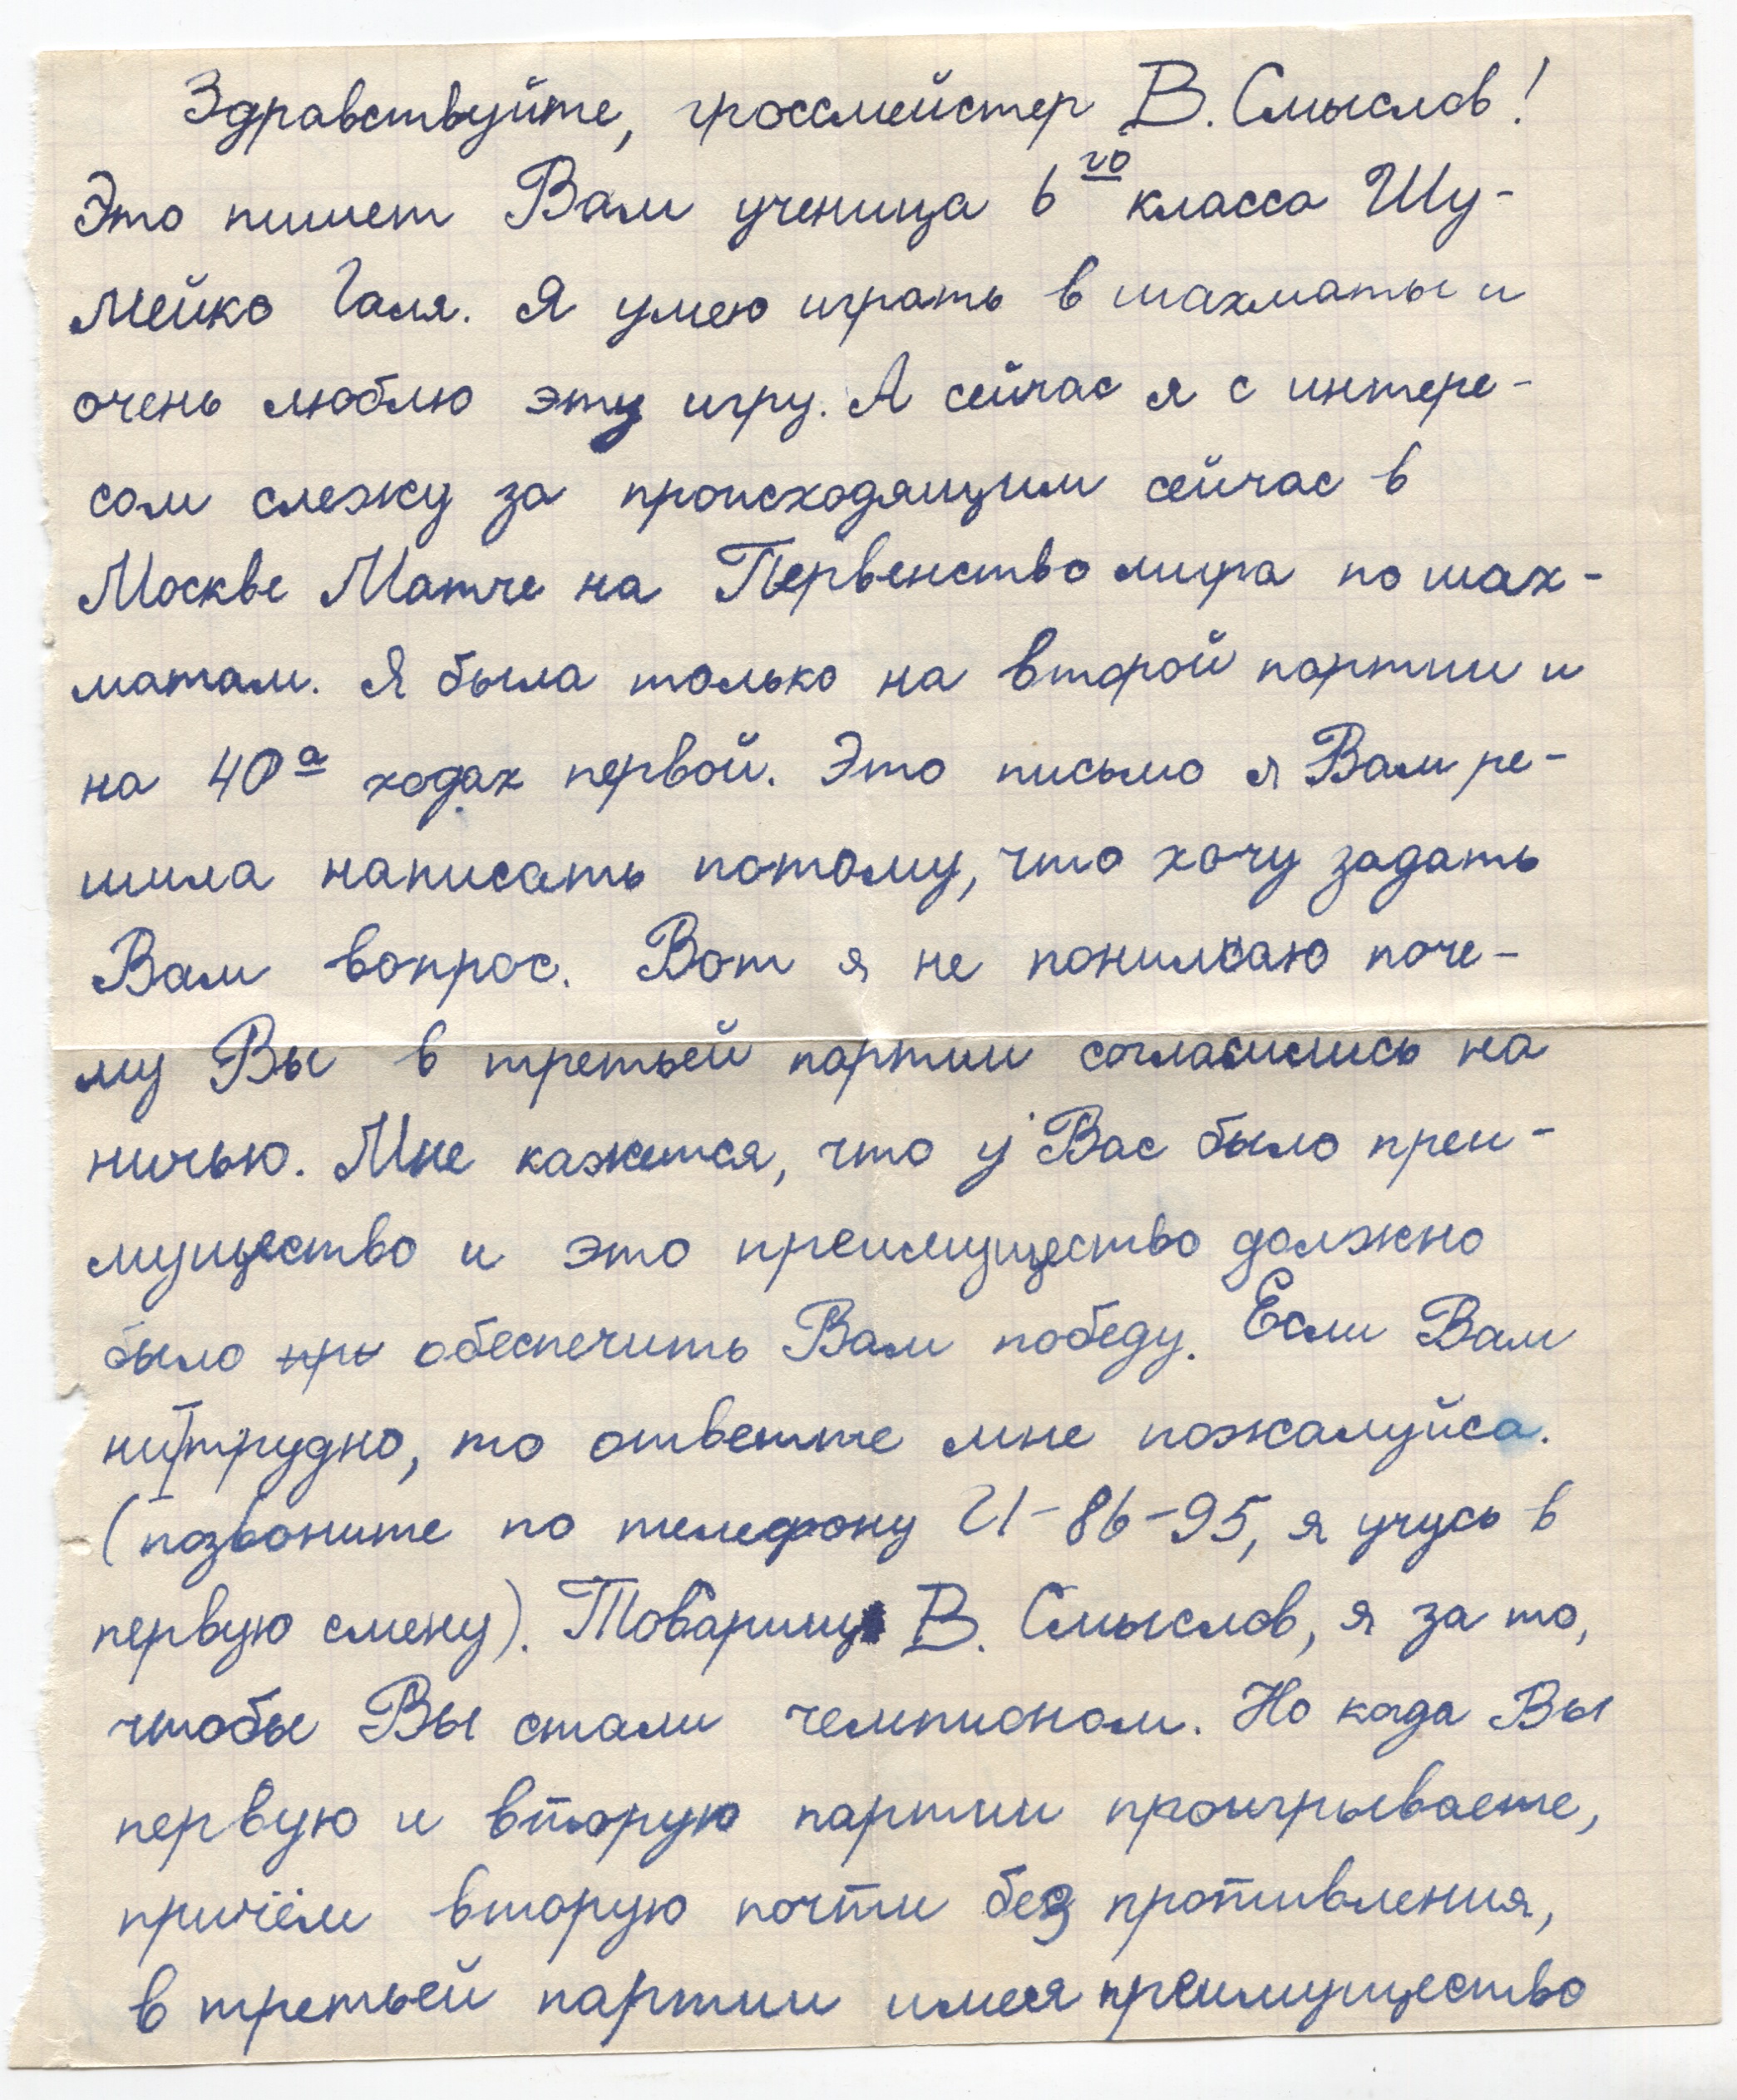 Здравствуйте, гроссмейстер В. Смыслов!
Это пишет Вам ученица 6го класса Шу-
мейко Галя. Я умею играть в шахматы и
очень люблю эту игру. А сейчас я с интере-
сом слежу за происходящим сейчас в
Москве Матче на Первенство мира по шах-
матам. Я была только на второй партии и
на 40а ходах первой. Это письмо я Вам ре-
шила написать потому, что хочу задать
Вам вопрос. Вот я не понимаю поче-
му Вы в третьей партии согласились на
ничью. Мне кажется, что у Вас было преи-
мущество и это преимущество должно
было при обеспечить Вам победу. Если Вам
нитрудно, то ответте мне пожалуйса.
(позвоните по телефону И-86-95, я учусь в
первую смену). Товарищ В. Смыслов, я за то,
чтобы Вы стали чемпионом. Но когда Вы
первую и вторую партии проигрываете,
причём вторую почти без противления,
в третьей партии имея преимущество